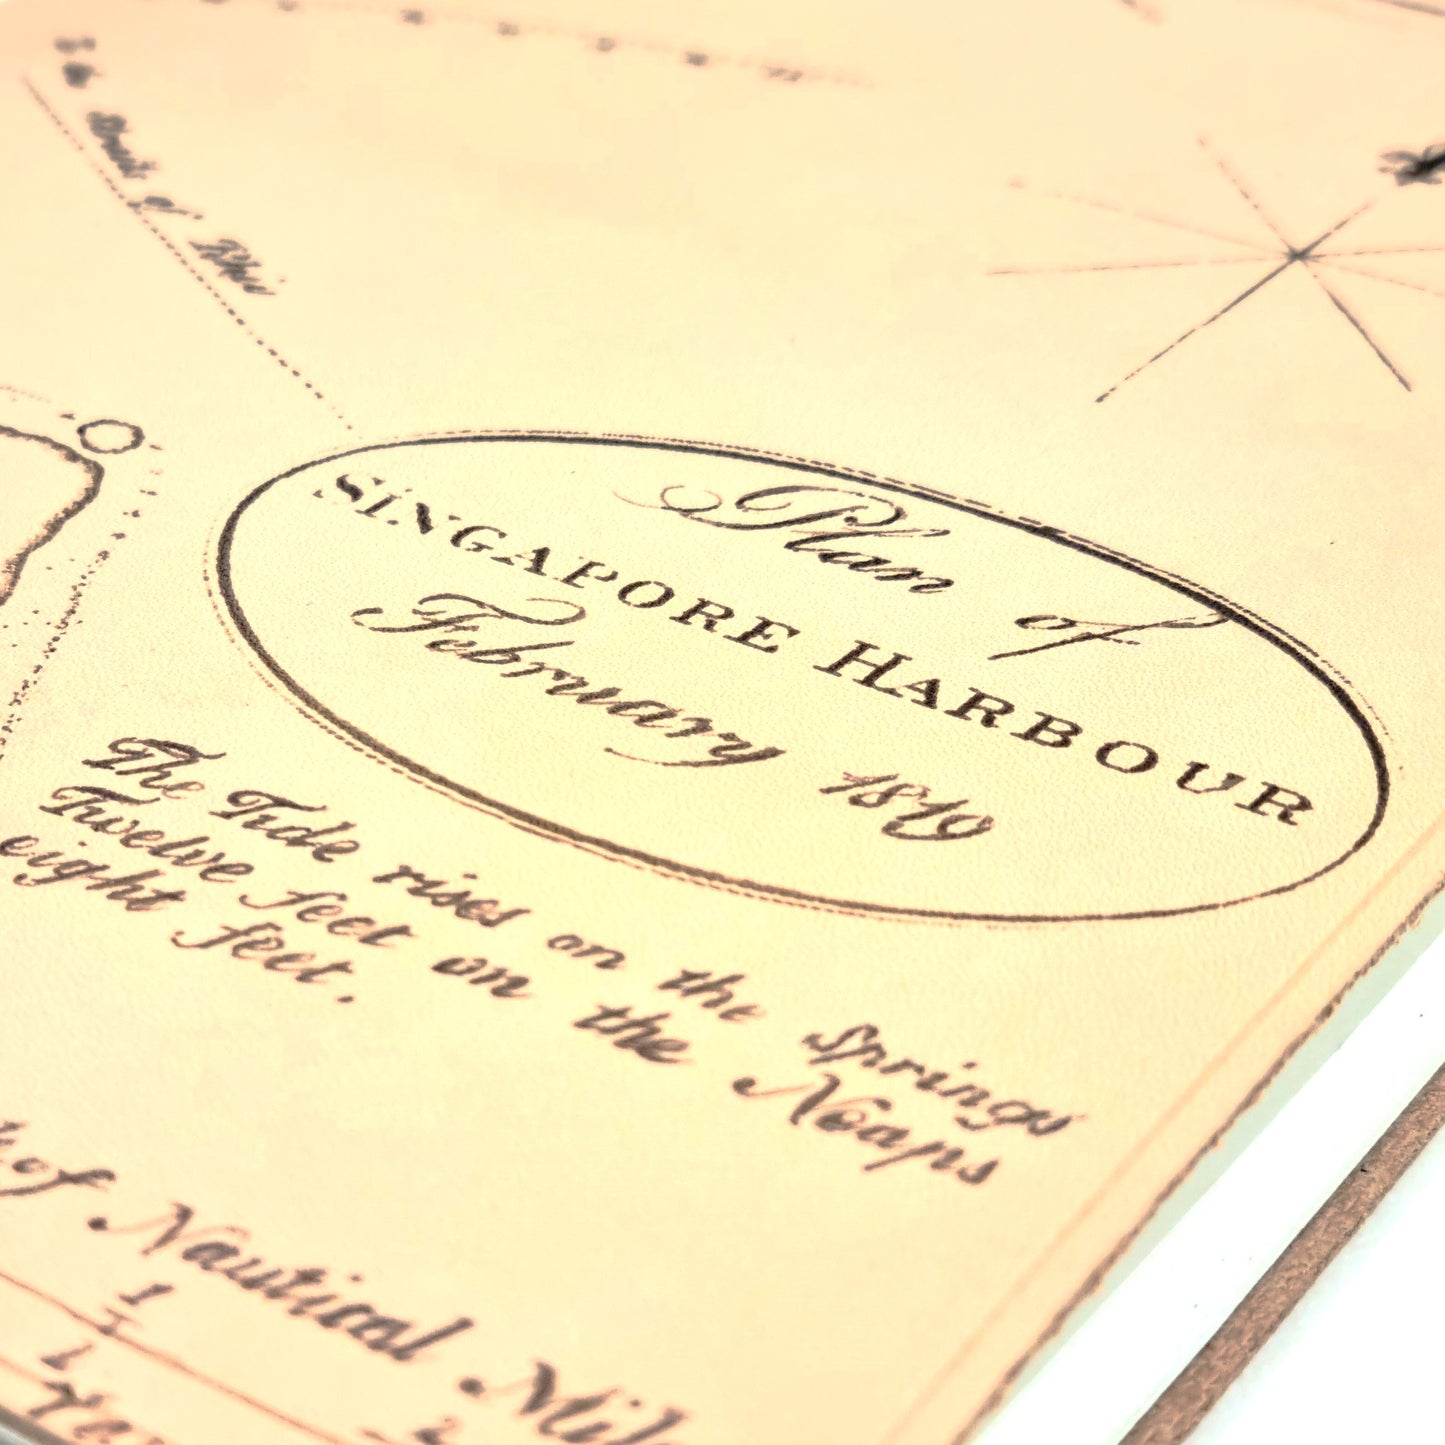 Straits of Rhio
Plan of
SINGAPORE HARBOUR
February 1819
The Tide rises on the Springs
Twelve feet on the Neaps
eight feet.
of Nautical
1
2
1
2